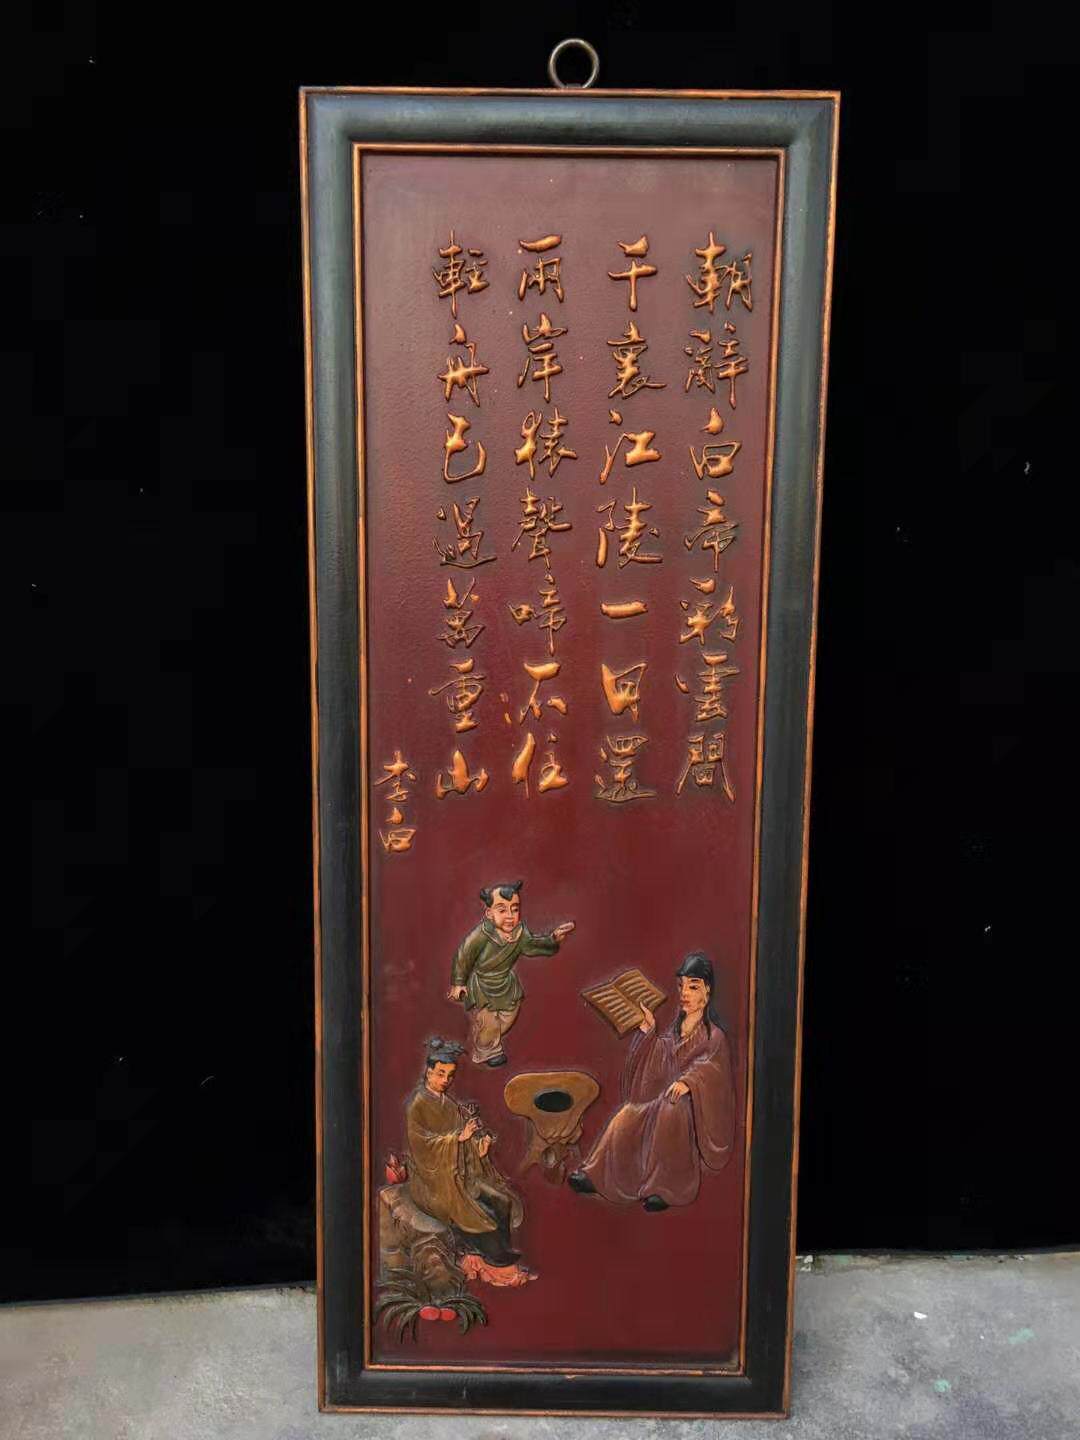 朝辭白帝彩雲間
千裏江陵一日還
兩岸猿聲啼不住
輕舟已過萬重山
李白